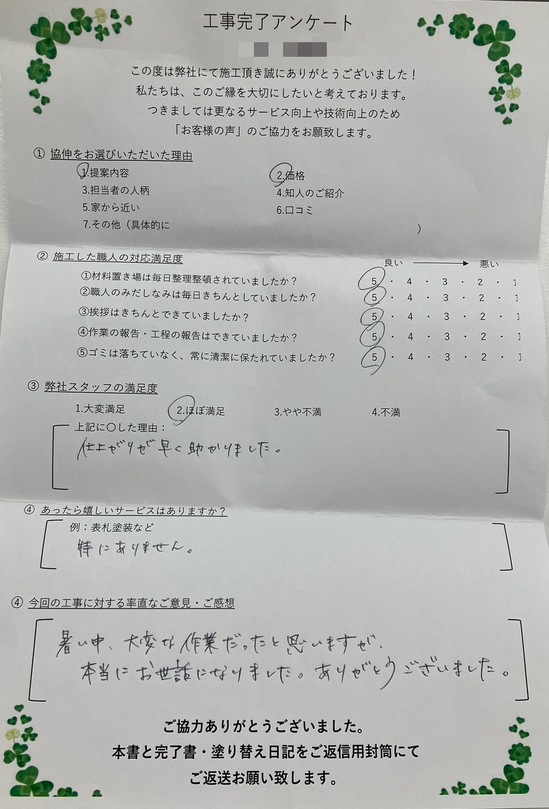 工事完了アンケート
この度は弊社にて施工頂き誠にありがとうございました！
私たちは、このご縁を大切にしたいと考えております。
つきましては更なるサービス向上や技術向上のため
「お客様の声」のご協力をお願致します。
① 協伸をお選びいただいた理由
1.提案内容 2.価格
3.担当者の人柄 4.知人のご紹介
5.家から近い 6.口コミ
7.その他（具体的に ）
② 施工した職人の対応満足度 良い 悪い
①材料置き場は毎日整理整頓されていましたか？ 5 ・ 4 ・ 3 ・ 2 ・ 1
②職人のみだしなみは毎日きちんとしていましたか？ 5 ・ 4 ・ 3 ・ 2 ・ 1
③挨拶はきちんとできていましたか？ 5 ・ 4 ・ 3 ・ 2 ・ 1
④作業の報告・工程の報告はできていましたか？ 5 ・ 4 ・ 3 ・ 2 ・ 1
⑤ゴミは落ちていなく、常に清潔に保たれていましたか？ 5 ・ 4 ・ 3 ・ 2 ・ 1
③ 弊社スタッフの満足度
1.大変満足 2.ほぼ満足 3.やや不満 4.不満
上記に〇した理由：
仕上がりが早く助かりました。
④ あったら嬉しいサービスはありますか？
例：表札塗装など
特にありません。
④ 今回の工事に対する率直なご意見・ご感想
暑い中、大変な作業だったと思いますが、
本当にお世話になりました。ありがとうございました。
ご協力ありがとうございました。
本書と完了書・塗り替え日記をご返信用封筒にて
ご返送お願い致します。